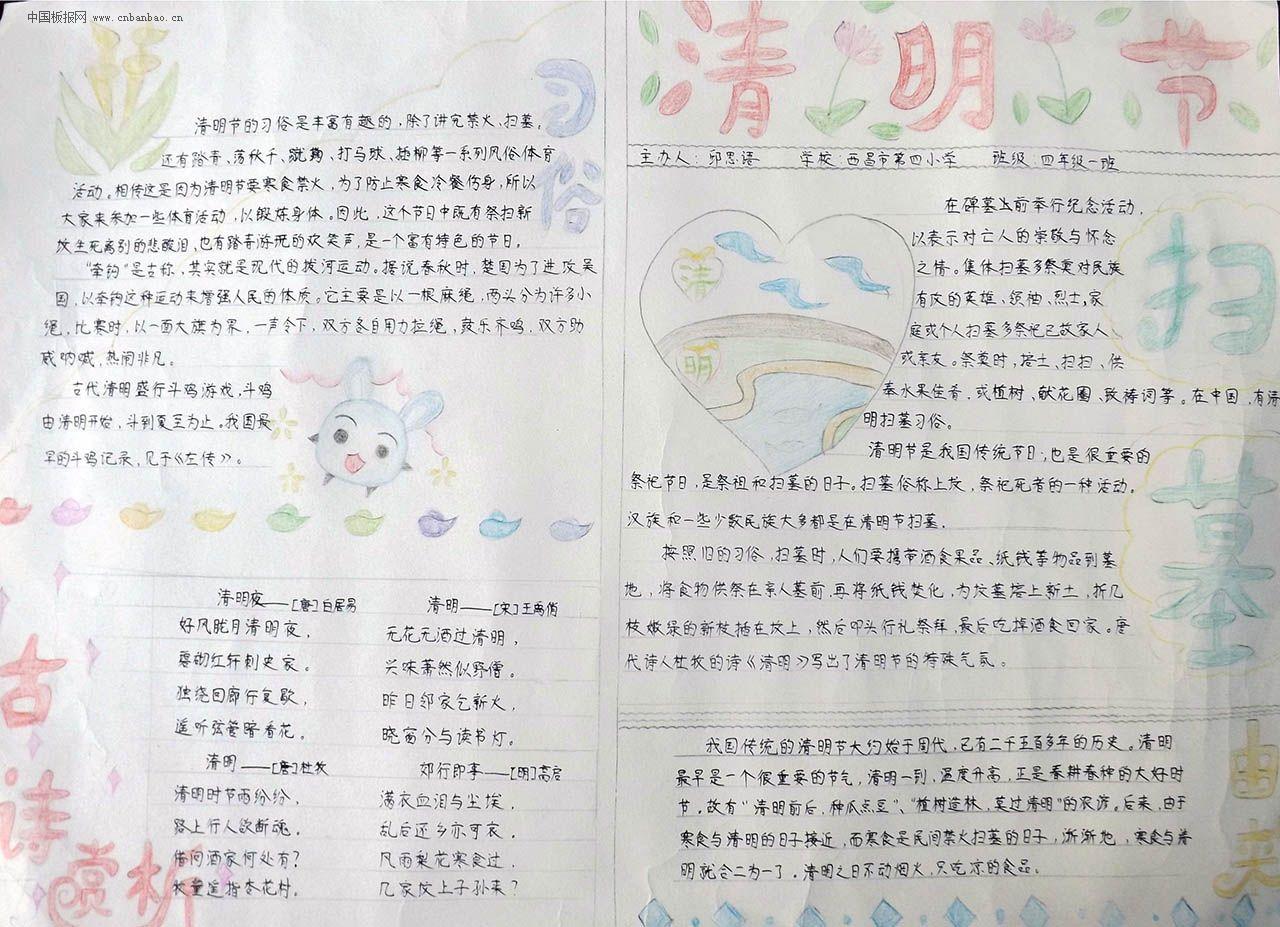 中国板报网 www.cnbanbao.cn
习俗
清明节的习俗是丰富有趣的，除了讲究禁火、扫墓。
还有踏青、荡秋千、蹴鞠、打马球、插柳等一系列风俗体育
活动。相传这是因为清明节要寒食禁火，为了防止寒食冷餐伤身，所以
大家来参加一些体育活动，以锻炼身体。因此，这个节日中既有祭扫新
坟生死离别的悲酸泪，也有踏青游玩的欢笑声，是一个富有特色的节日。
“牵钩”是古称，其实就是现代的拔河运动。据说春秋时，楚国为了进攻吴
国，以牵钩这种运动来增强人民的体质。它主要是以一根麻绳，两头分为许多小
绳，比赛时，以一面大旗为界，一声令下，双方各自用力拉绳，鼓乐齐鸣，双方助
威呐喊，热闹非凡。
古代清明盛行斗鸡游戏，斗鸡
由清明开始，斗到夏至为止。我国最
早的斗鸡记录，见于《左传》。
古诗赏析
清明夜——[唐]白居易
好风胧月清明夜，
碧砌红轩刺史家。
独绕回廊行复歇，
遥听弦管暗看花。
清明——[宋]王禹偁
无花无酒过清明，
兴味萧然似野僧。
昨日邻家乞新火，
晓窗分与读书灯。
清明——[唐]杜牧
清明时节雨纷纷，
路上行人欲断魂。
借问酒家何处有？
牧童遥指杏花村。
郊行即事——[明]高启
满衣血泪与尘埃，
乱后还乡亦可哀。
风雨梨花寒食过，
几家坟上子孙来？
清明节
主办人：邱思语 学校：西昌市第四小学 班级：四年级一班
清
明
扫墓
在碑墓之前举行纪念活动，
以表示对亡人的崇敬与怀念
之情。集体扫墓多祭奠对民族
有功的英雄、领袖、烈士，家
庭或个人扫墓多祭祀已故家人、
或亲友。祭奠时，培土、扫扫、供
奉水果佳肴，或植树、献花圈、致祷词等。在中国，有清
明扫墓习俗。
清明节是我国传统节日，也是很重要的
祭祀节日，是祭祖和扫墓的日子。扫墓俗称上坟，祭祀死者的一种活动。
汉族和一些少数民族大多都是在清明节扫墓。
按照旧的习俗，扫墓时，人们要携带酒食果品、纸钱等物品到墓
地，将食物供祭在亲人墓前，再将纸钱焚化，为坟墓培上新土，折几
枝嫩绿的新枝插在坟上，然后叩头行礼祭拜，最后吃掉酒食回家。唐
代诗人杜牧的诗《清明》写出了清明节的特殊气氛。
由来
我国传统的清明节大约始于周代，已有二千五百多年的历史。清明
最早是一个很重要的节气，清明一到，温度升高，正是春耕春种的大好时
节。故有“清明前后，种瓜点豆”、“植树造林，莫过清明”的农谚。后来，由于
寒食与清明的日子接近，而寒食是民间禁火扫墓的日子，渐渐地，寒食与清
明就合二为一了。清明之日不动烟火，只吃凉的食品。